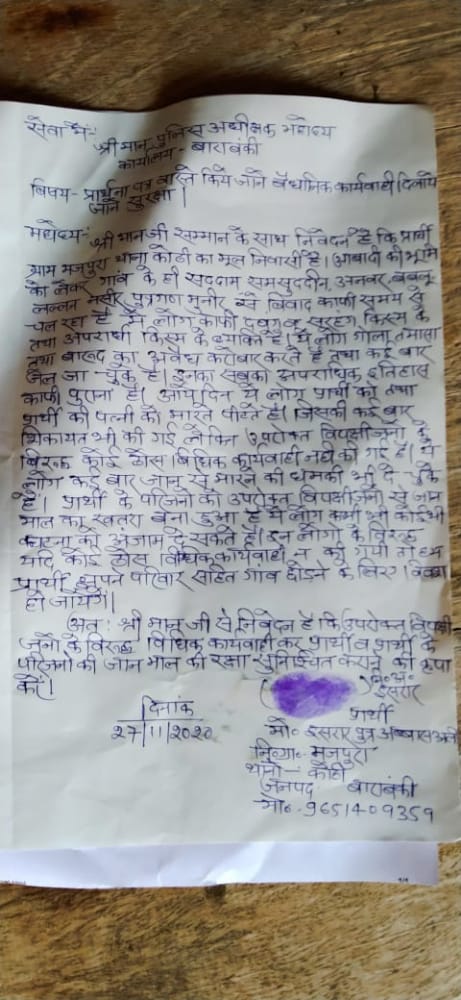 सेवा में:-
श्री मान पुलिस अधीक्षक महोदय
कार्यालय - बाराबंकी
विषय- प्रार्थना पत्र वास्ते किये जाने बैधानिक कार्यवाही दिलाये
जाने सुरक्षा ।
महोदय:- श्री मान जी सम्मान के साथ निवेदन है कि प्रार्थी
ग्राम मुजपुरा थाना कोठी का मूल निवासी है। आबादी की भूमि
को लेकर गांव के ही सददाम समसुददीन, अनवर बबलू
लल्लन नसीर पुत्रगण मुनीर से विवाद काफी समय से
चल रहा है ये लोग काफी दबंग व सरहंग किस्म के
तथा अपराधी किस्म के व्यक्ति है। ये लोग गोला तमासा
तथा बारूद का अवैध करोबार करते है तथा कई बार
जेल जा चुके है। इनका सबका अपराधिक इतिहास
काफी पुराना है। आये दिन ये लोग प्रार्थी को तथा
प्रार्थी की पत्नी को मारते पीटते है। जिसकी कई बार
शिकायत भी की गई लेकिन उपरोक्त विपक्षीजनों के
विरूद्ध कोई ठोस विधिक कार्यवाही नही की गई है। ये
लोग कई बार जान से मारने की धमकी भी दे चुके
है। प्रार्थी के परिजनो को उपरोक्त विपक्षीजनों से जान
माल का खतरा बना हुआ है ये लोग कभी भी कोई भी
घटना को अंजाम दे सकते है। इन लोगो के विरूद्ध
यदि कोई ठोस विधिक कार्यवाही न की गयी तो हम
प्रार्थी अपने परिवार सहित गांव छोडने के लिए विवश
हो जायेंगे।
अतः श्री मान जी से निवेदन है कि उपरोक्त विपक्षी
जनों के विरूद्ध विधिक कार्यवाही कर प्रार्थी व प्रार्थी के
परिजनो की जान माल की रक्षा सुनिश्चित कराने की कृपा
करें।
इसरार
प्रार्थी
दिनांक
27/11/2020
मो० इसरार पुत्र अब्बास अली
नि०ग्रा०- मुजपुरा
थाना - कोठी
जनपद बाराबंकी
मो०- 9651409359